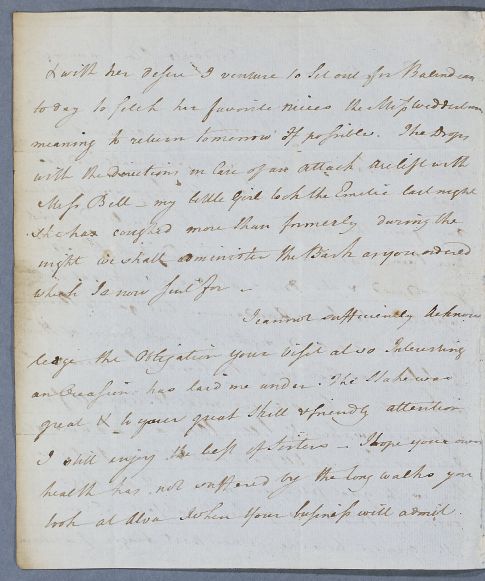 & with her desire I venture to set out for Balendean
to day to fetch her favorite nieces the Miss Wedderburn
meaning to return tomorrow If possible. The Drops
with the Directions in Case of an attack are left with
Miss Bell – my little Girl took the Emetic last night
she has coughed more than formerly during the
night we shall administer the Bark as you ordered
which Is now sent for –
I cannot sufficiently Acknow
ledge the Obligation your Visit at so Interesting
an Occasion has laid me under. The Stake was
great & to your great Skill & friendly attention
I still enjoy the best of Sisters – I hope your own
health has not suffered by the long walks you
took at Alva & When your business will admit.